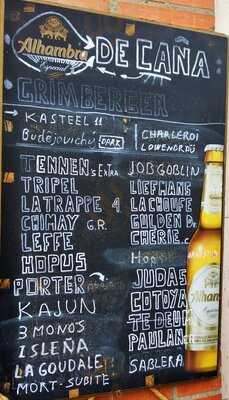 Alhambra
Especial
DE CAÑA
GRIMBERGER
KASTEEL 11
Budějovický DARK
CHARLEROI
LÖWENBRÄU
TENNEN'S EXTRA
TRIPEL
LA TRAPPE 4
CHIMAY G.R.
LEFFE
HOPUS
PORTER
KAJUN
3 MONOS
ISLEÑA
LA GOUDALE
MORT-SUBITE
JOBGOBLIN
LIEFMANS
LA CHOUFE
GULDEN D.
CHERIE
JUDAS
COTOYA
TE DEUM
PAULANER
SABLERA
Alhambra